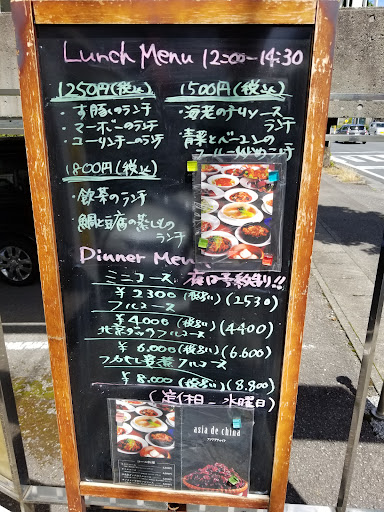 Lunch Menu 12:00-14:30
1250円(税込)
・す豚のランチ
・マーボーのランチ
・ユーリンチーのランチ
1500円(税込)
・海老のチリソース
ランチ
・青菜とベーコンの
1800円(税込)
・飲茶のランチ
・鯛と豆腐の蒸しもの
ランチ
Dinner Menu
ミニコース
¥2300(税別)(2530)
フルコース
¥4.000(税別)(4400)
北京ダックフルコース
¥6.000(税別)(6.600)
フカヒレ姿煮フルコース
¥8.000(税別)(8.800)
(定休日-水曜日)
asia de china
アジアデチャイナ